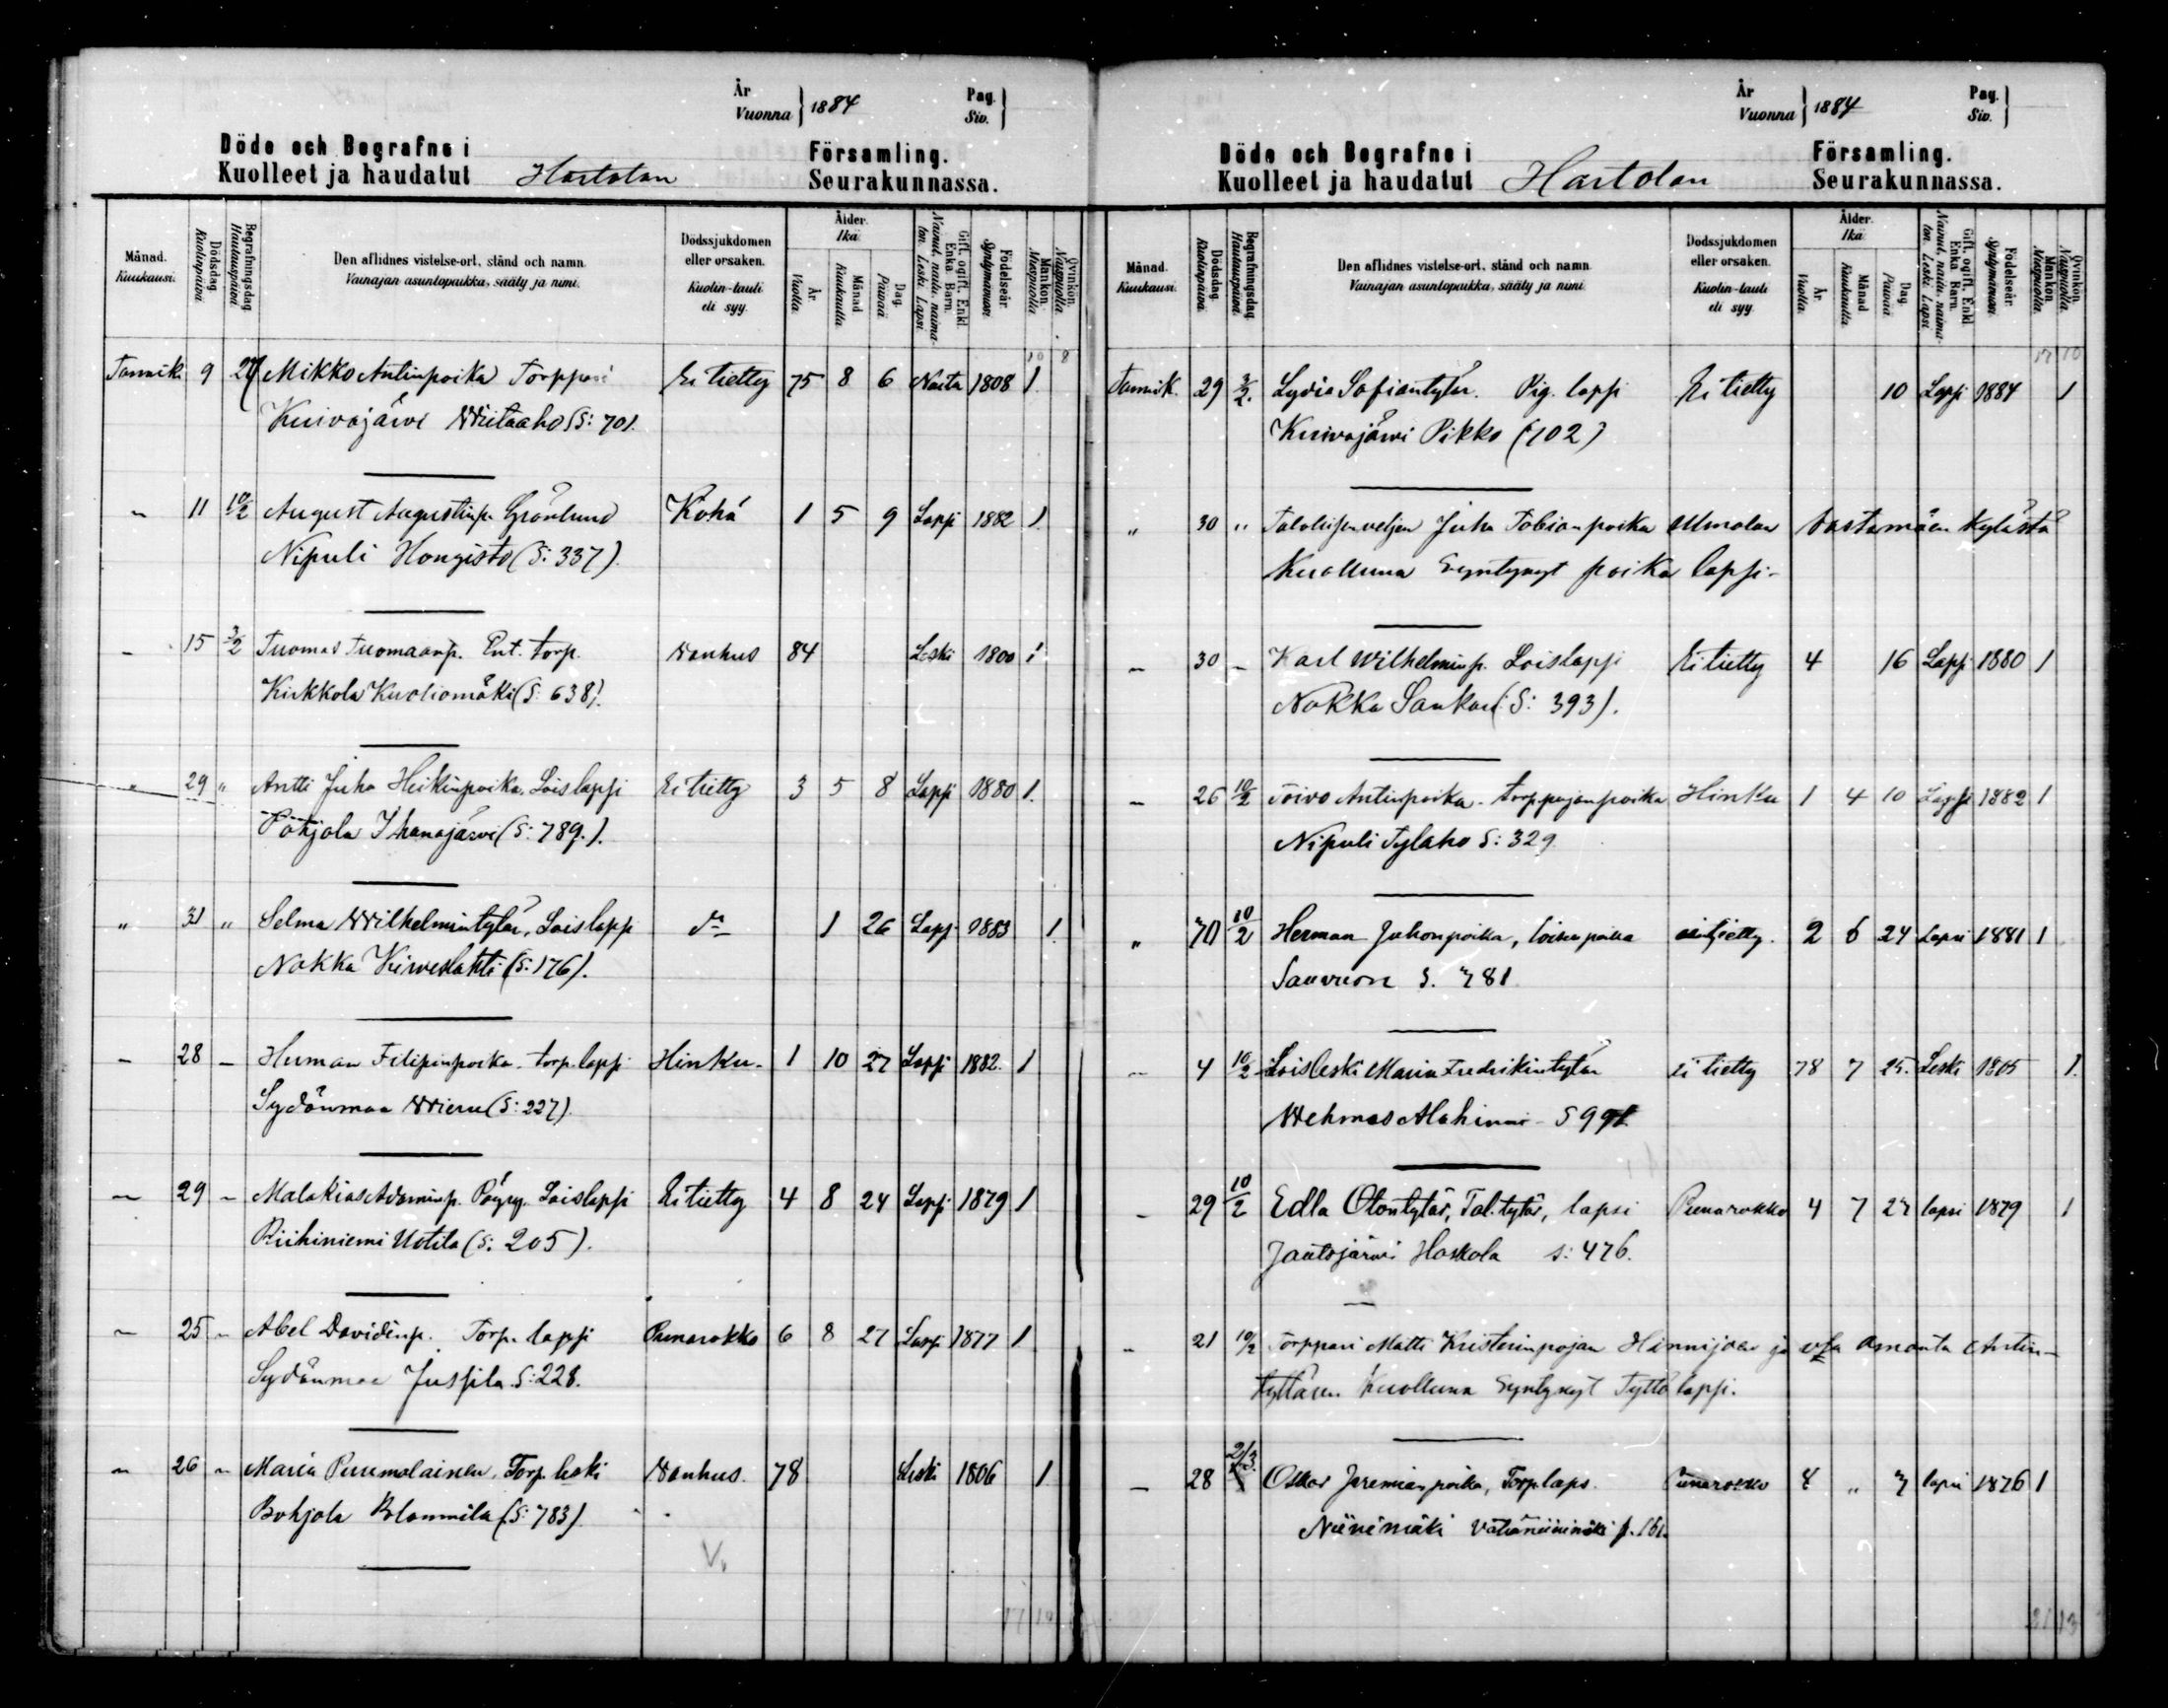 År
Vuonna } 1884
Pag.
Siv. }
Döde och Begrafne i Församling.
Kuolleet ja haudatut Hartolan Seurakunnassa.
Månad. Kuukausi.
Dödsdag. Kuolinpäivä.
Begrafningsdag. Hautauspäivä.
Den aflidnes vistelse-ort, stånd och namn.
Vainajan asuntopaikka, sääty ja nimi.
Dödssjukdomen eller orsaken.
Kuolin-tauti eli syy.
Ålder. Ikä.
År. Vuotta.
Månad Kuukautta
Dag. Päivää
Gift, ogift, Enkl. Enka. Barn.
Nainut, naitu, naimaton. Leski. Lapsi.
Födelseår. Syntymävuosi.
Mankön. Miespuolia.
Qvinkön. Naispuolia.
10 8
Tammik. 9 Mikko Antinpoika Torppari Ei tietty 75 8 6 Naitu 1808 1.
Kuivajärvi Wiitaaho (S: 701.
" 11 10/2 August Augustinp. Grönlund Köhä 1 5 9 Lapsi 1882 1.
Nipuli Hongisto (S: 337).
" 15 3/2 Tuomas Tuomaanp. Ent. torp. Wanhus 84 Leski 1800 1
Kirkkola Kuoliomäki (S: 638).
" 29 " Antti Juho Heikinpoika. Loislapsi Ei tietty 3 5 8 Lapsi 1880 1.
Pohjola Ihanajärvi (S: 789.).
" 31 " Selma Wilhelmintytär, Loislapsi 1 26 Laps 1883 1.
Nokka Kirveslahti (S: 176).
– 28 – Herman Filipinpoika. torp. lapsi Hinku. 1 10 27 Lapsi 1882. 1
Sydänmaa Wieru (S: 227)
– 29 – Malakias Adaminp. Loislapsi Ei tietty 4 8 24 Lapsi 1879 1
Riihiniemi Uotila (S: 205).
– 25 – Abel Davidinp. Torp. lapsi Punarokko 6 8 27 Lapsi 1877 1
Sydänmaa Jussila S: 228.
– 26 – Maria Puumalainen, Torp. leski Wanhus. 78 Leski 1806 1.
Pohjola (S: 783)
V.
17 18
År
Vuonna } 1884
Pag.
Siv. }
Döde och Begrafne i Församling.
Kuolleet ja haudatut Hartolan Seurakunnassa.
Månad. Kuukausi.
Dödsdag. Kuolinpäivä.
Begrafningsdag. Hautauspäivä.
Den aflidnes vistelse-ort, stånd och namn.
Vainajan asuntopaikka, sääty ja nimi.
Dödssjukdomen eller orsaken.
Kuolin-tauti eli syy.
Ålder. Ikä.
År. Vuotta.
Månad Kuukautta
Dag. Päivää
Gift, ogift, Enkl. Enka. Barn.
Nainut, naitu, naimaton. Leski. Lapsi.
Födelseår. Syntymävuosi.
Mankön. Miespuolia.
Qvinkön. Naispuolia.
Tammik. 29 3/2. Lydia Sofiantytär. Pig. lapsi Ei tietty 10 Lapsi 1884 1
Kuivajärvi Pikko (102)
" 30 " Talollisen veljen Juho Tobianpoika Ulmalan Vastamäen kylästä
Kuolluna Syntynyt poika lapsi-
– 30 – Karl Wilhelminp. Loislapsi Ei tietty 4 16 Lapsi 1880 1
Nokka Sankari (S: 393).
– 26 10/2 Toivo Antinpoika. torpparjanpoika Hinku 1 4 10 Lapsi 1882 1
Nipuli Tylaho S: 329.
" 10/2 Herman Juhonpoika, loisenpoika eitietty. 2 6 24 Lapsi 1881 1
S. 781
– 4 10/2 Loisleski Maria Fredrikintytär ei tietty 78 7 25. Leski 1805 1.
Wehmas Alahinno S
– 29 10/2 Edla Otontytär, Tal. tytär, lapsi Punarokko 4 7 27 lapsi 1879 1
Jautsjärvi Haskola s: 476.
" 21 10/2 Torppari Matti Kristerinpojan ja vsa Amanta Antin-
tyttären Kuolluna Syntynyt Tyttö lapsi.
– 28 2/3. Oskar Jeremianpoika, Torp. laps. Punarokko 8 " 7 lapsi 1876 1
Niinimäki Vähäniinimäki p. 161.
21 13